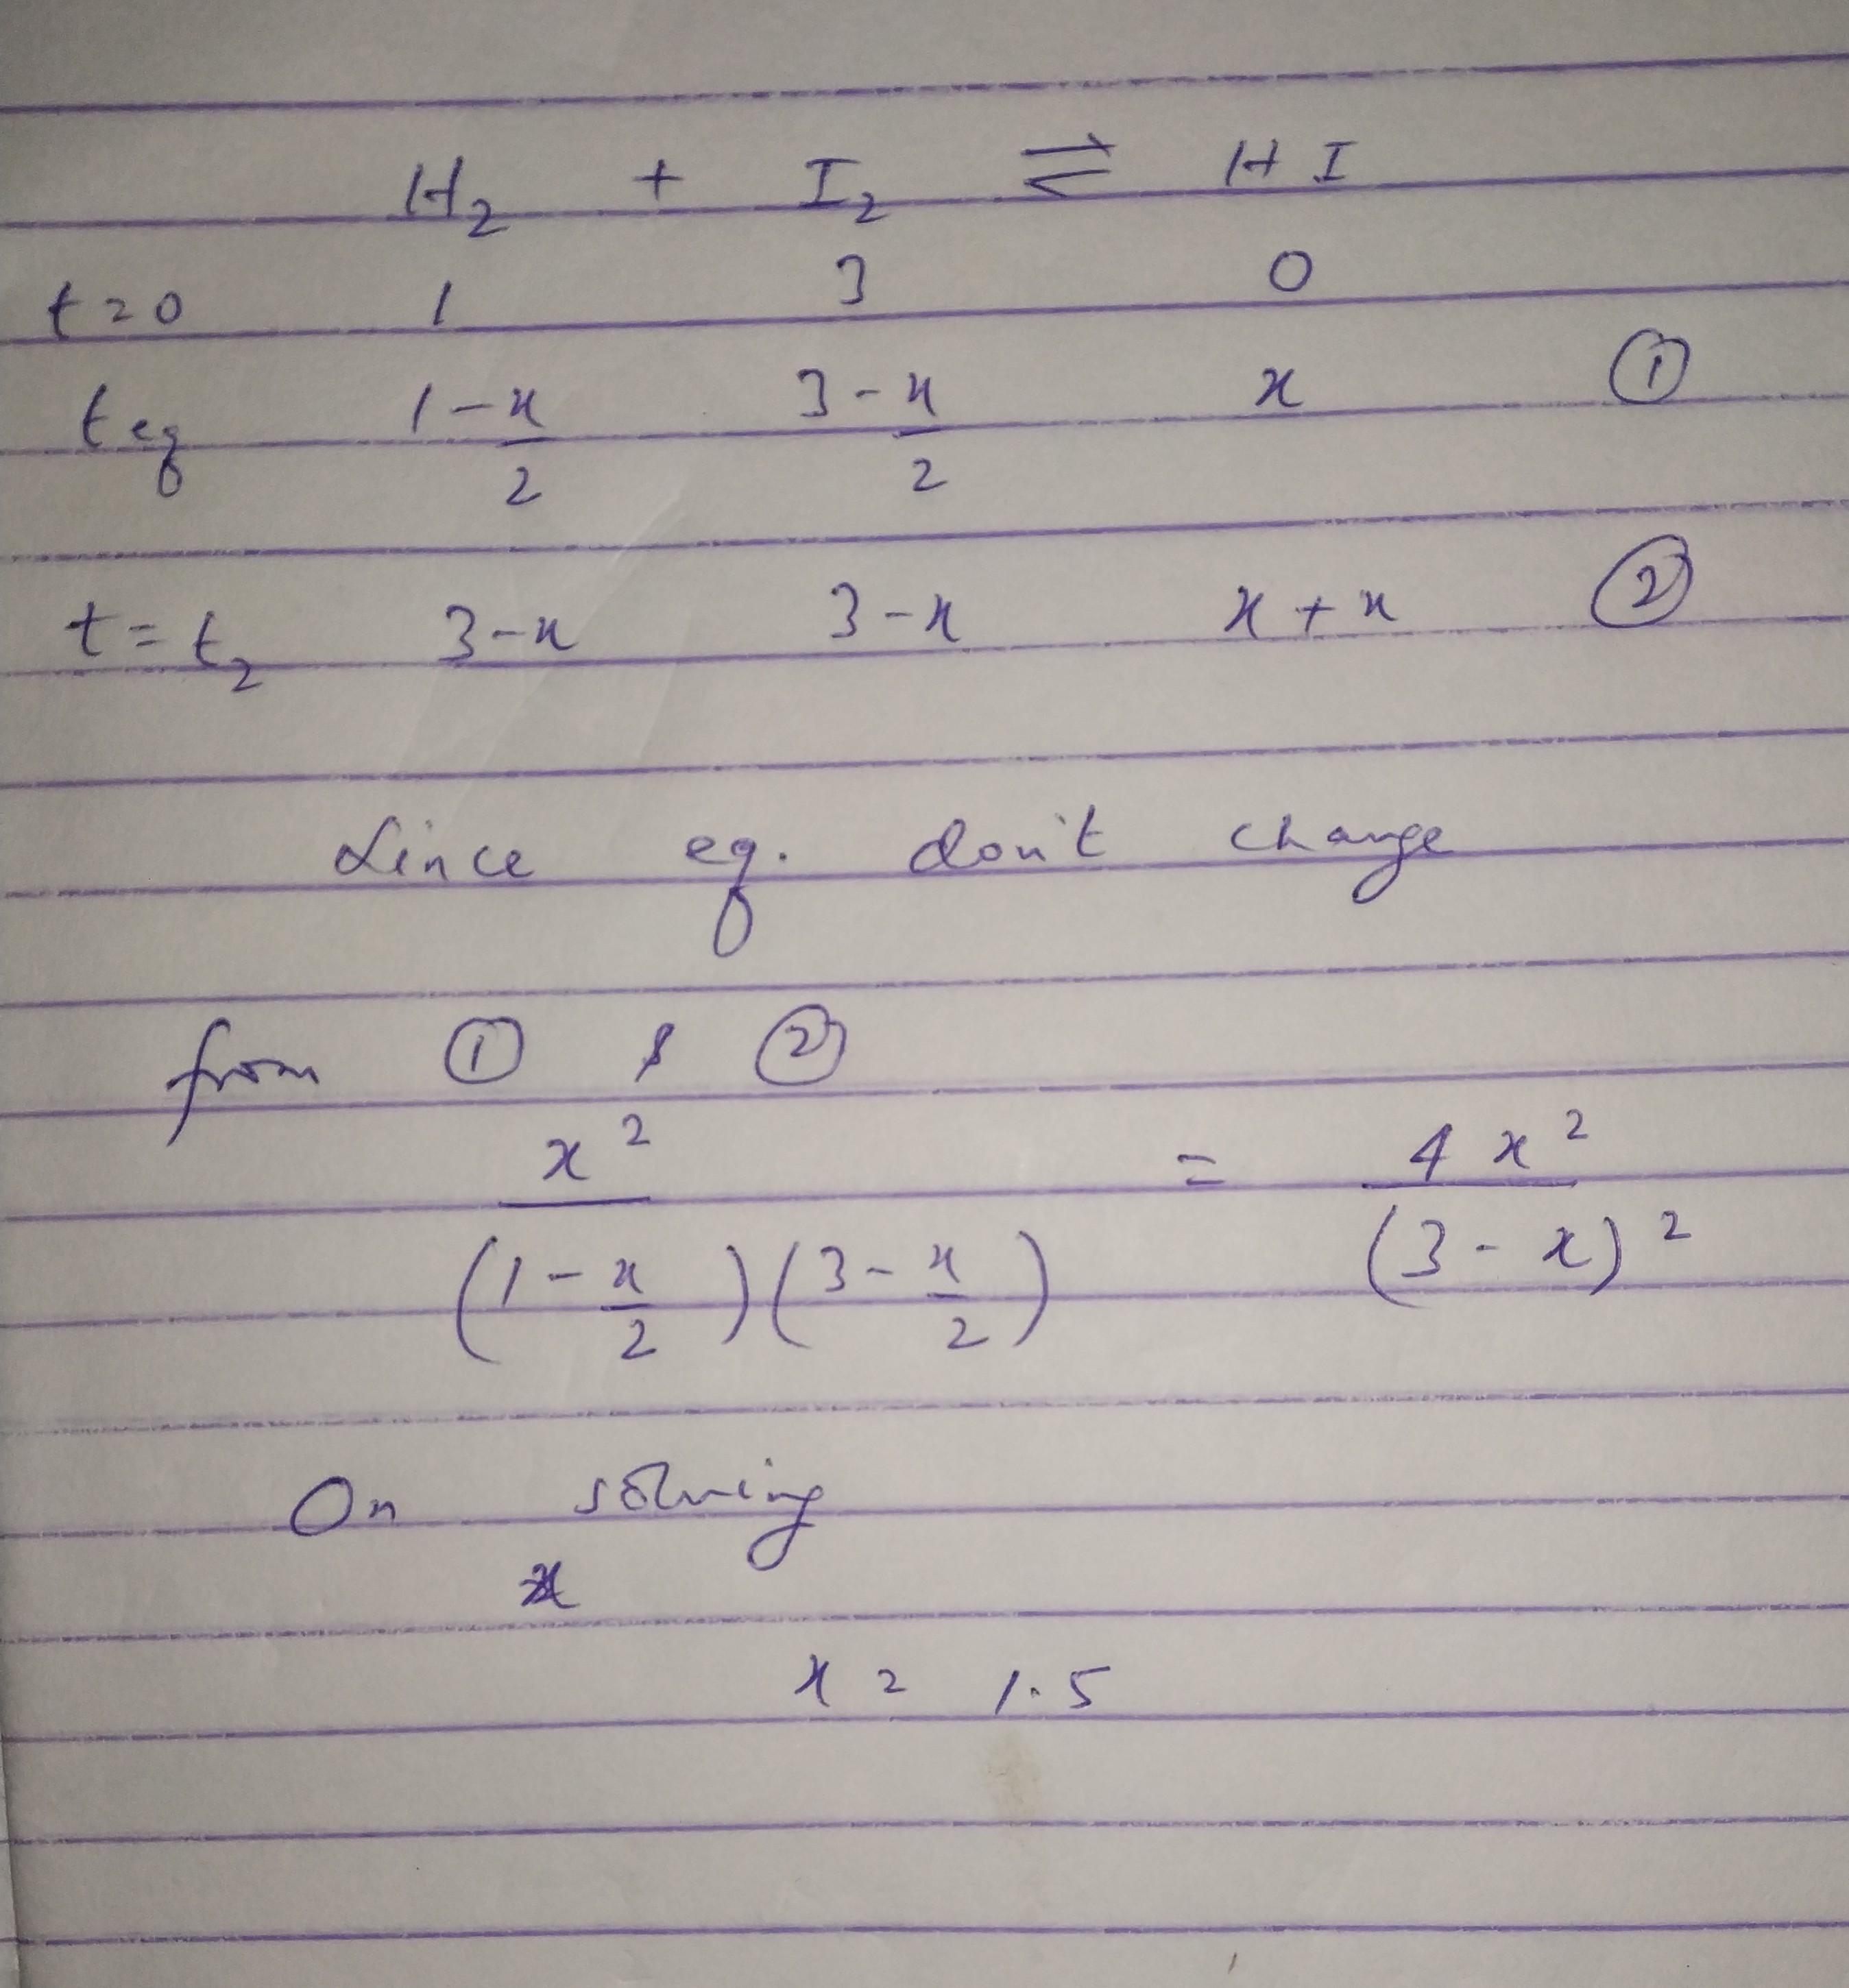 H₂ + I₂ ⇌ HI
t=0 1 3 0
t eq 1-x/2 3-x/2 x ①
t=t₂ 3-x 3-x x+x ②
Since eq. don't change
from ① & ②
x²/(1-x/2)(3-x/2) = 4x²/(3-x)²
On solving
x = 1.5